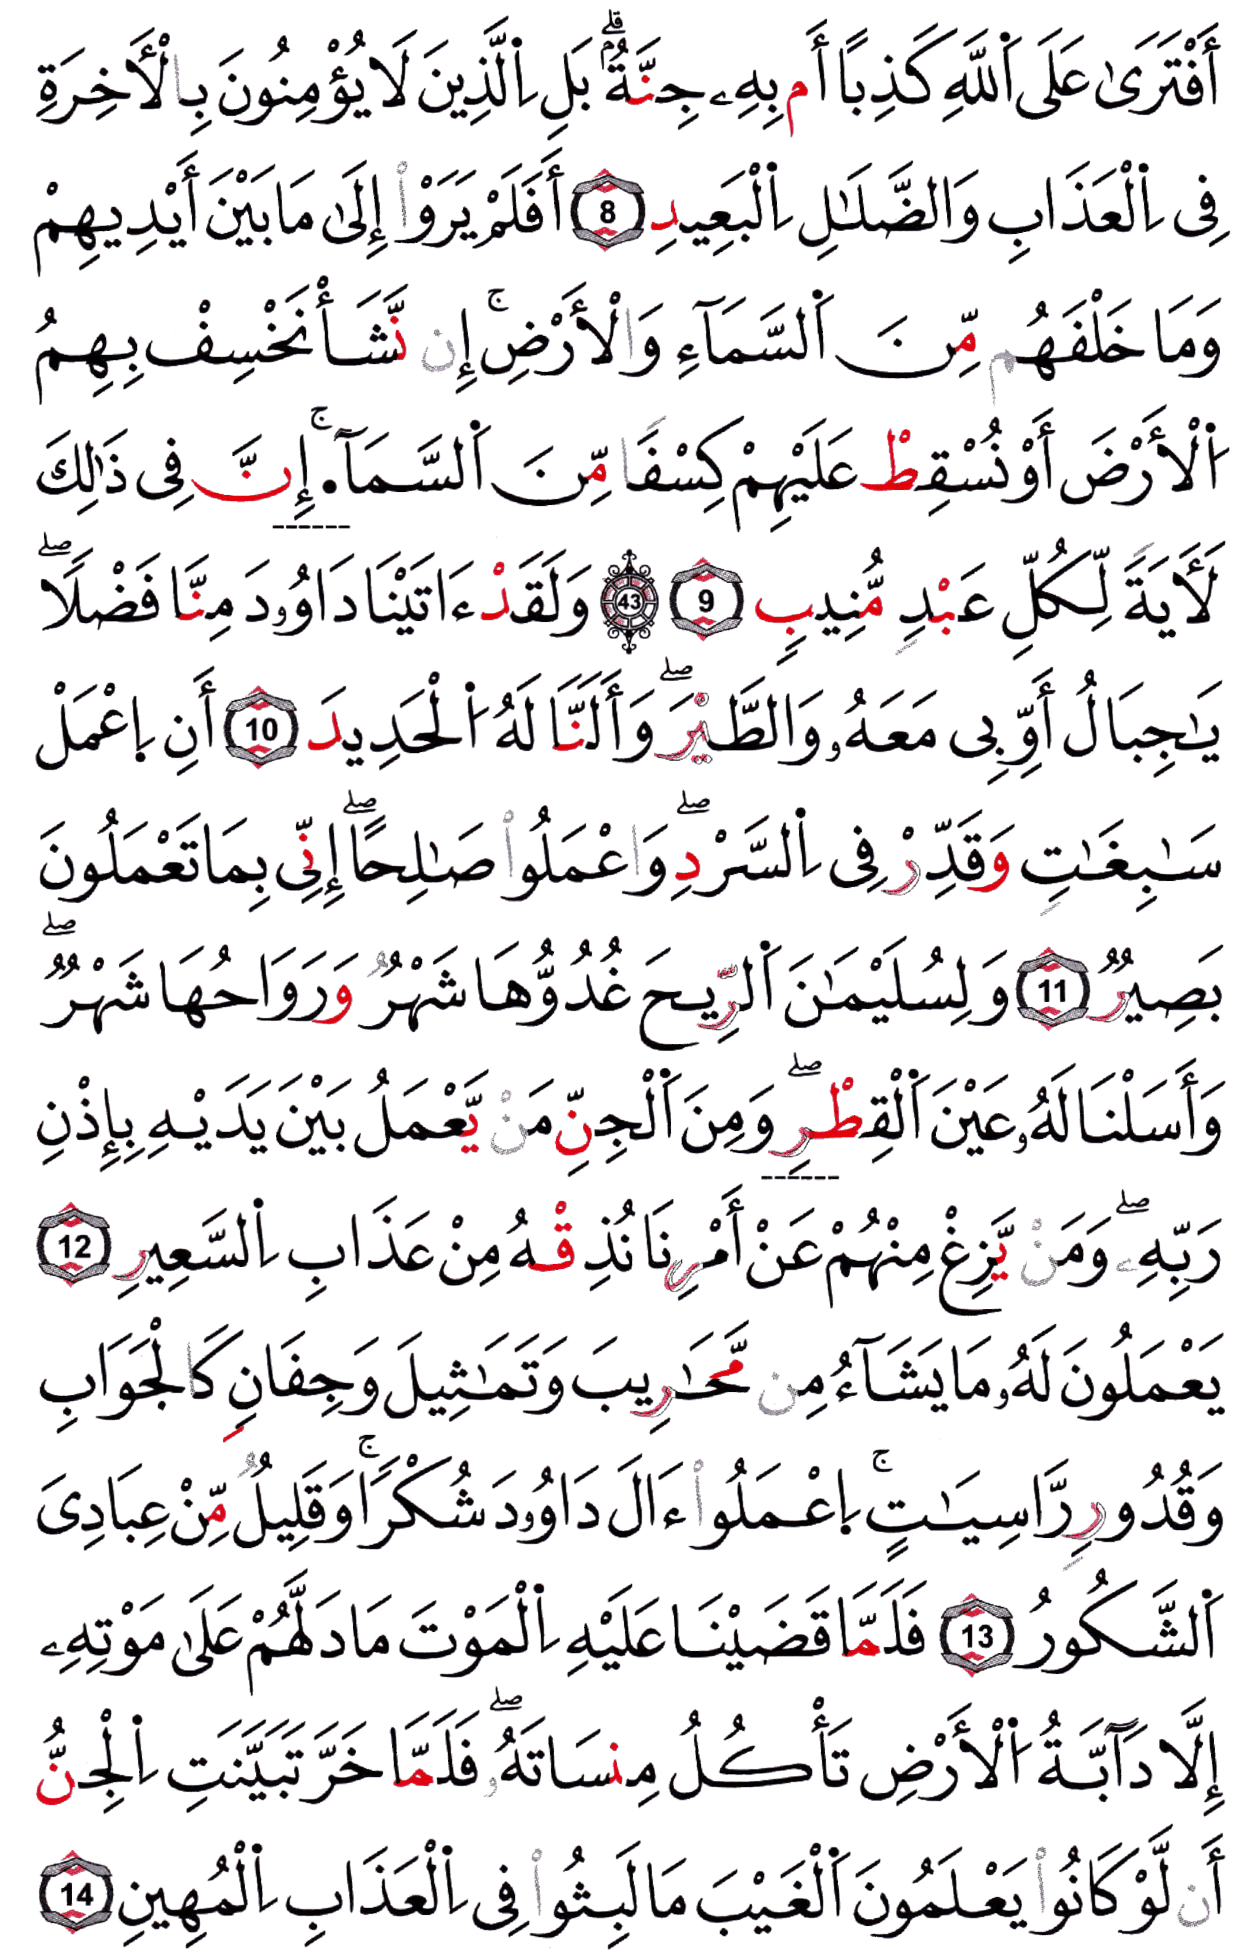 أَفْتَرَىٰ عَلَى اَ۬للَّهِ كَذِبًا أَم بِهِۦ جِنَّةُۢۖ بَلِ اِ۬لذِينَ لَا يُؤْمِنُونَ بِالْأَخِرَةِ
فِى اِ۬لْعَذَابِ وَالضَّلَٰلِ اِ۬لْبَعِيدِ 8 أَفَلَمْ يَرَوْاْ إِلَىٰ مَا بَيْنَ أَيْدِيهِمْ
وَمَا خَلْفَهُم مِّنَ اَ۬لسَّمَآءِ وَالْأَرْضِۚ إِن نَّشَأْ نَخْسِفْ بِهِمُ
اُ۬لْأَرْضَ أَوْ نُسْقِطْ عَلَيْهِمْ كِسْفًا مِّنَ اَ۬لسَّمَآ.ۚ إِنَّ فِى ذَٰلِكَ
لَأَيَةً لِّكُلِّ عَبْدٍ مُّنِيبٍ 9 43 وَلَقَدْ ءَاتَيْنَا دَاوُۥدَ مِنَّا فَضْلًاۖ
يَٰجِبَالُ أَوِّبِى مَعَهُۥ وَالطَّيْرَۖ وَأَلَنَّا لَهُ اُ۬لْحَدِيدَ 10 أَنِ اِ۪عْمَلْ
سَٰبِغَٰتٍ وَقَدِّرْ فِى اِ۬لسَّرْدِۖ وَاعْمَلُواْ صَٰلِحًاۖ إِنِّى بِمَا تَعْمَلُونَ
بَصِيرٌ 11 وَلِسُلَيْمَٰنَ اَ۬لرِّيحَ غُدُوُّهَا شَهْرٌ وَرَوَاحُهَا شَهْرٌۖ
وَأَسَلْنَا لَهُۥ عَيْنَ اَ۬لْقِطْرِۖ وَمِنَ اَ۬لْجِنِّ مَنْ يَّعْمَلُ بَيْنَ يَدَيْهِ بِإِذْنِ
رَبِّهِۦۖ وَمَنْ يَّزِغْ مِنْهُمْ عَنْ أَمْرِنَا نُذِقْهُ مِنْ عَذَابِ اِ۬لسَّعِيرِ 12
يَعْمَلُونَ لَهُۥ مَا يَشَآءُ مِن مَّحَٰرِيبَ وَتَمَٰثِيلَ وَجِفَانٍ كَالْجَوَابِ
وَقُدُورٍ رَّاسِيَٰتٍۚ اِ۪عْمَلُواْ ءَالَ دَاوُۥدَ شُكْرًاۚ وَقَلِيلٌ مِّنْ عِبَادِىَ
اَ۬لشَّكُورُ 13 فَلَمَّا قَضَيْنَا عَلَيْهِ اِ۬لْمَوْتَ مَا دَلَّهُمْ عَلَىٰ مَوْتِهِۦ
إِلَّا دَآبَّةُ اُ۬لْأَرْضِ تَأْكُلُ مِنسَاتَهُۥۖ فَلَمَّا خَرَّ تَبَيَّنَتِ اِ۬لْجِنُّ
أَن لَّوْ كَانُواْ يَعْلَمُونَ اَ۬لْغَيْبَ مَا لَبِثُواْ فِى اِ۬لْعَذَابِ اِ۬لْمُهِينِ 14